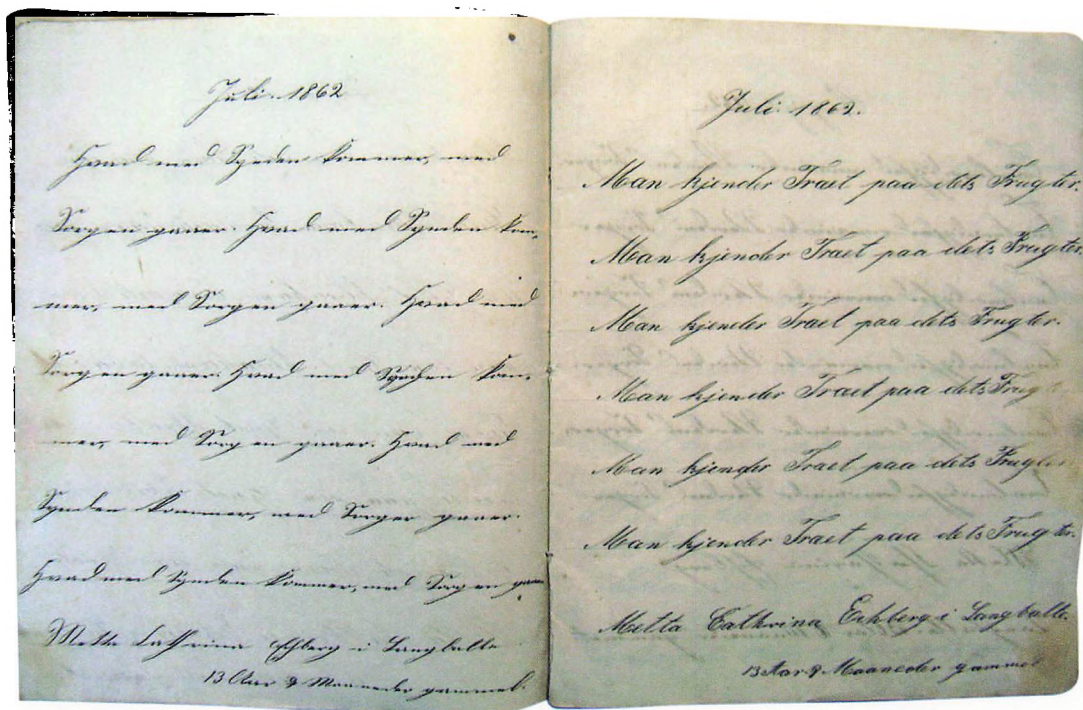 Juli. 1862
Hvad med Synden kommer, med
Sorgen gaaer. Hvad med Synden kom-
mer, med Sorgen gaaer. Hvad med
Sorgen gaaer. Hvad med Synden kom-
mer, med Sorgen gaaer. Hvad med
Synden kommer, med Sorgen gaaer.
Hvad med Synden kommer, med Sorgen gaaer
Mette Cathrina Eskberg i Langballe
13 Aar 9 Maaneder gammel.
Juli. 1862.
Man kjender Traet paa dets Frugter.
Man kjender Traet paa dets Frugter.
Man kjender Traet paa dets Frugter.
Man kjender Traet paa dets Frugt
Man kjender Traet paa dets Frugter
Man kjender Traet paa dets Frugter.
Metta Cathrina Eskberg i Langballe.
13 Aar 9 Maaneder gammel